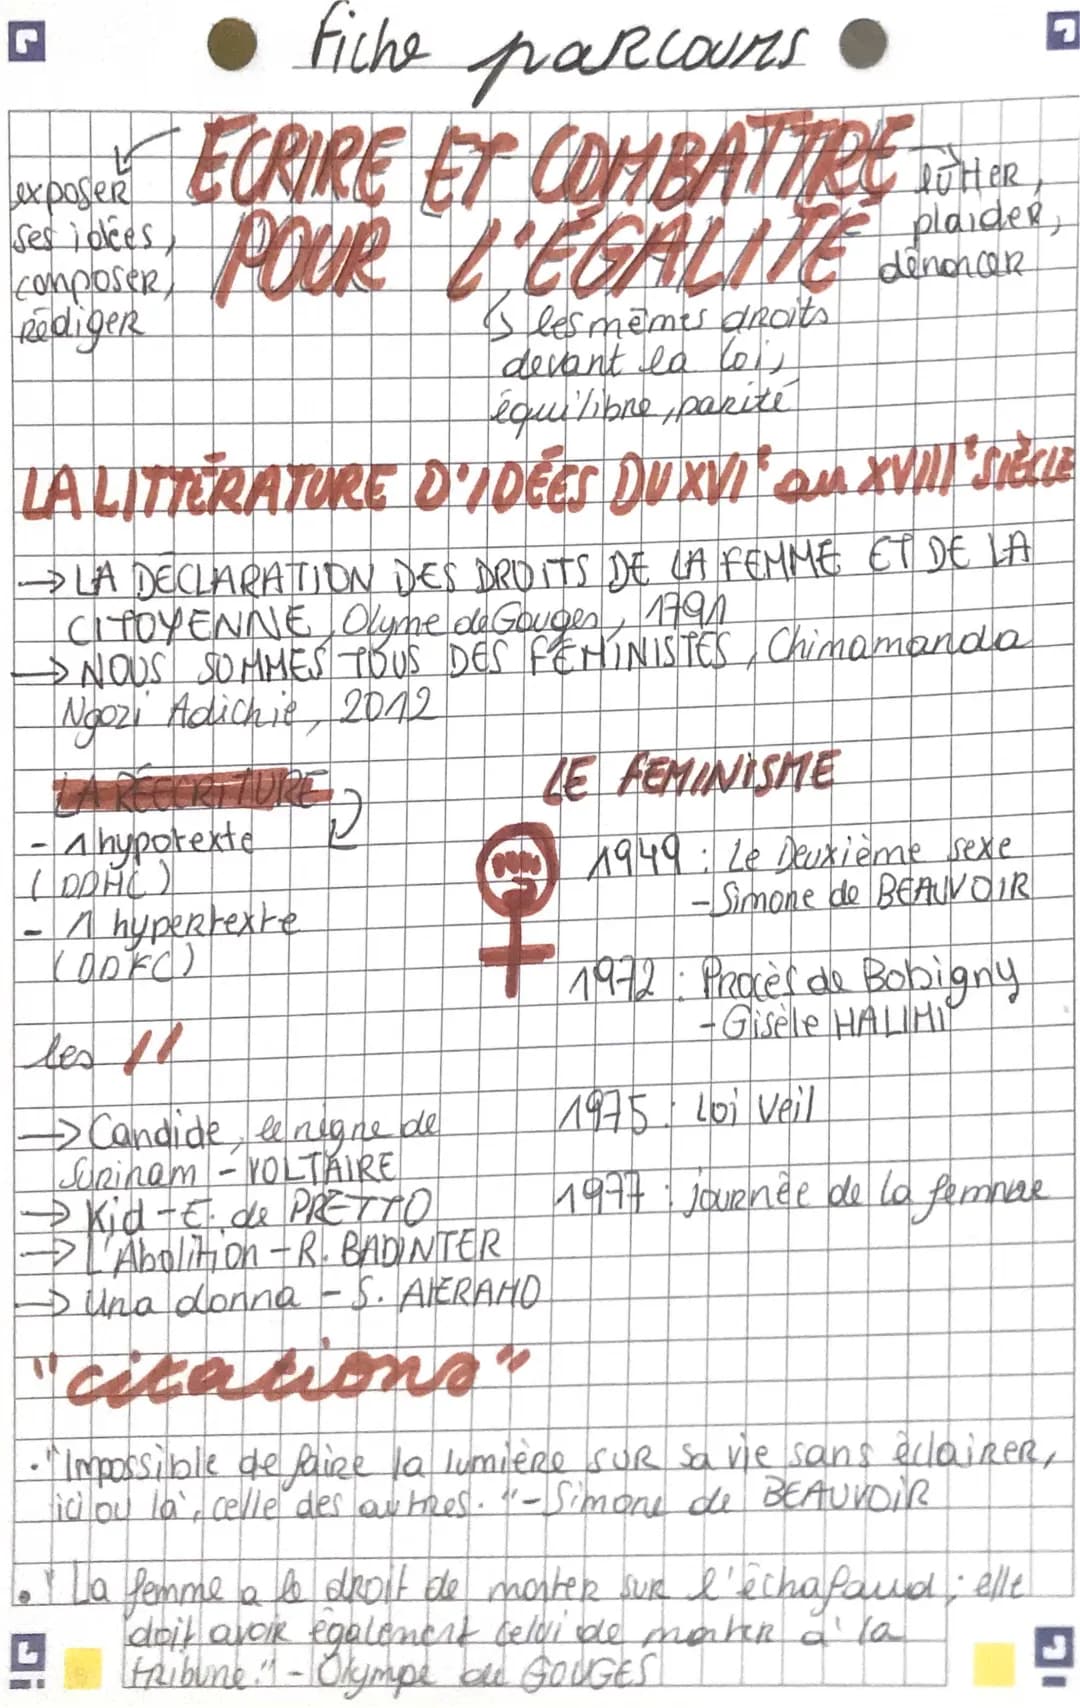 fiche parcours
ECRIRE ET COMBATTRE
POUR L'ÉGALITÉ
exposer
ses idées,
composer,
rédiger
lutter,
plaider,
dénoncer
les mêmes droits
devant la loi,
équilibre, parité
LA LITTÉRATURE D'IDÉES DU XVIe au XVIIIe SIÈCLE
→ LA DÉCLARATION DES DROITS DE LA FEMME ET DE LA
CITOYENNE, Olyme de Gouges, 1791
→ NOUS SOMMES TOUS DES FÉMINISTES, Chimamanda
Ngozi Adichie, 2012
LA RÉÉCRITURE
- 1 hypotexte
(DDHC)
- 1 hypertexte
(DDFC)
les //
→ Candide, le nègre de
Surinam - VOLTAIRE
→ Kid - E. de PRETTO
→ L'Abolition - R. BADINTER
→ Una donna - S. AlERAMO
LE FEMINISME
1949 : Le Deuxième sexe
- Simone de BEAUVOIR
1972 : Procès de Bobigny
- Gisèle HALIMI
1975 : Loi Veil
1977 : journée de la femme
"citations"
. "Impossible de faire la lumière sur sa vie sans éclairer,
ici ou là, celle des autres. " - Simone de BEAUVOIR
. " La femme a le droit de monter sur l'échafaud ; elle
doit avoir également celui de monter à la
tribune." - Olympe de GOUGES